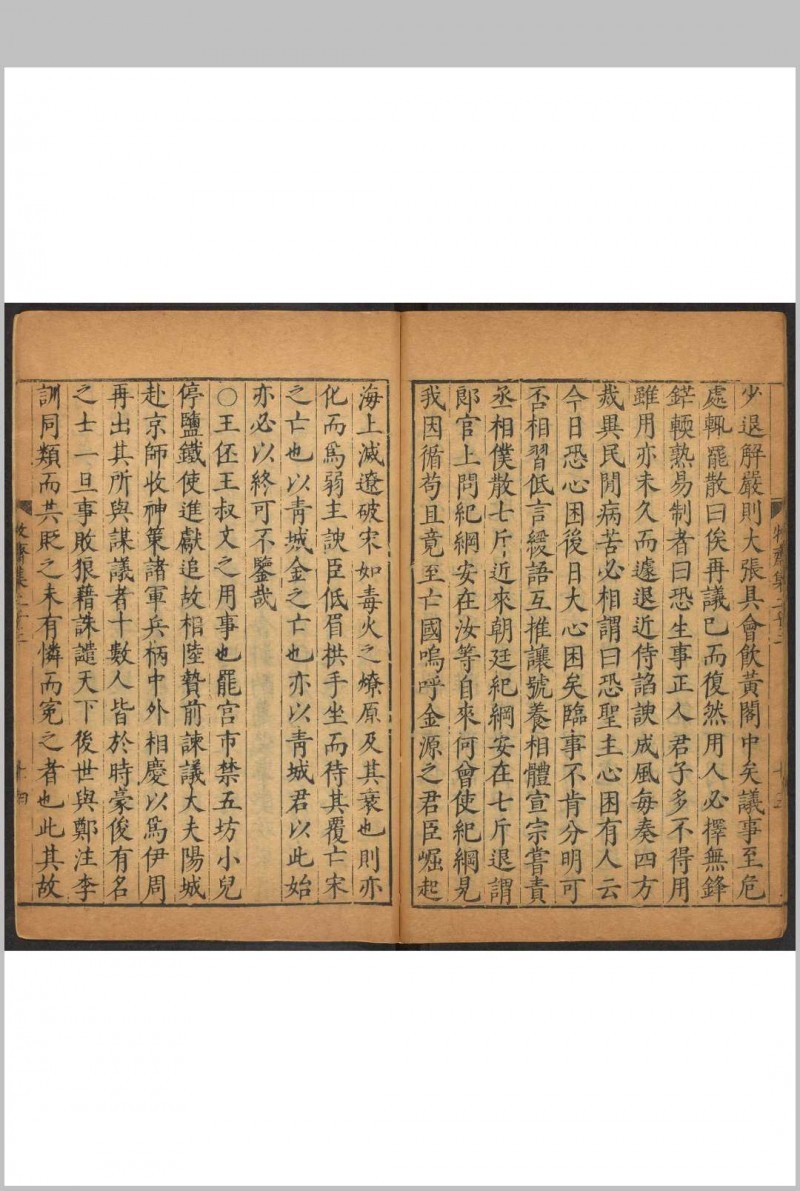 少退解嚴則大張具會飲黃閣中矣議事至危
處輒罷散曰俟再議已而復然用人必擇無鋒
鋩輭熟易制者曰恐生事正人君子多不得用
雖用亦未久而遽退近侍諂諛成風每奏四方
烖異民閒病苦必相謂曰恐聖主心困有人云
今日恐心困後日大心困矣臨事不肯分明可
否相習低言緩語互推讓號養相體宣宗嘗責
丞相僕散七斤近來朝廷紀綱安在七斤退謂
郎官上問紀綱安在汝等自來何曾使紀綱見
我因循苟且竟至亡國嗚呼金源之君臣崛起
海上滅遼破宋如毒火之燎原及其衰也則亦
化而爲弱主諛臣低眉拱手坐而待其覆亡宋
之亡也以青城金之亡也亦以青城君以此始
亦必以終可不鑒哉
○王伾王叔文之用事也罷宮市禁五坊小兒
停鹽鐵使進獻追故相陸贄前諫議大夫陽城
赴京師收神策諸軍兵柄中外相慶以爲伊周
再出其所與謀議者十數人皆於時豪俊有名
之士一旦事敗狼藉誅譴天下後世與鄭注李
訓同類而共貶之未有憐而寃之者也此其故
牧齋集